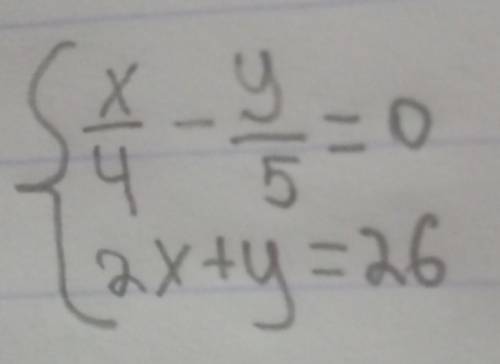 x/4 - y/5 = 0
2x+y=26